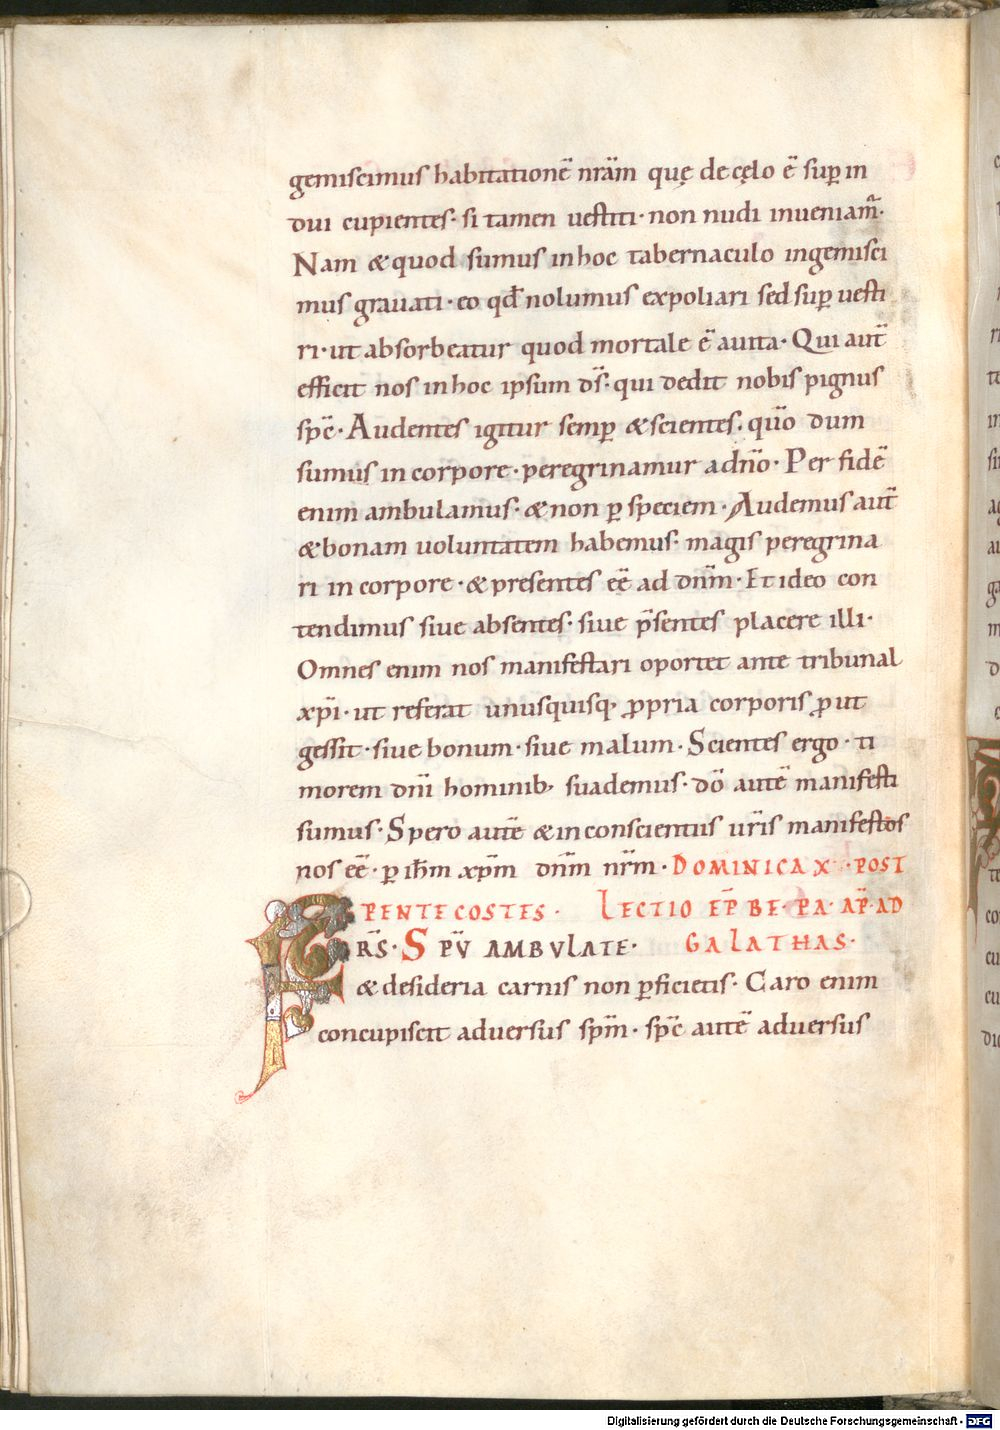 gemiscimus habitationē nrām quę de cęlo ē sup̄ in
dui cupientes· si tamen uestiti· non nudi inueniam̄·
Nam & quod sumus in hoc tabernaculo ingemisci
mus grauati· eo qd̄ nolumus expoliari sed sup̄ uesti
ri· ut absorbeatur quod mortale ē a uita· Qui aut̄
efficit nos in hoc ipsum ds̄· qui dedit nobis pignus
spc̄· Audentes igitur semp̄ & scientes· quō dum
sumus in corpore· peregrinamur a dn̄o· Per fidē
enim ambulamus· & non p̱ speciem· Audemus aut̄
& bonam uoluntatem habemus· magis peregrina
ri in corpore· & presentes eē ad dn̄m· Et ideo con
tendimus siue absentes· siue p̄sentes placere illi·
Omnes enim nos manifestari oportet ante tribunal
xpī· ut referat unusquisq, ꝓpria corporis ꝓut
gessit· siue bonum· siue malum· Scientes ergo· ti
morem dnī hominib, suademus· dō autē manifesti
sumus· Spero autē & in conscientiis ur̄is manifestos
nos eē· p̱ ih̄m xpm̄ dn̄m nr̄m· DOMINICA X· POST
PENTECOSTES· LECTIO EP̄ BE· PA· AP̄· AD
FRS̄· SPŪ AMBULATE· GALATHAS·
& desideria carnis non p̱ficietis· Caro enim
concupiscit aduersus spm̄· spc̄ autē aduersus
Digitalisierung gefördert durch die Deutsche Forschungsgemeinschaft - DFG